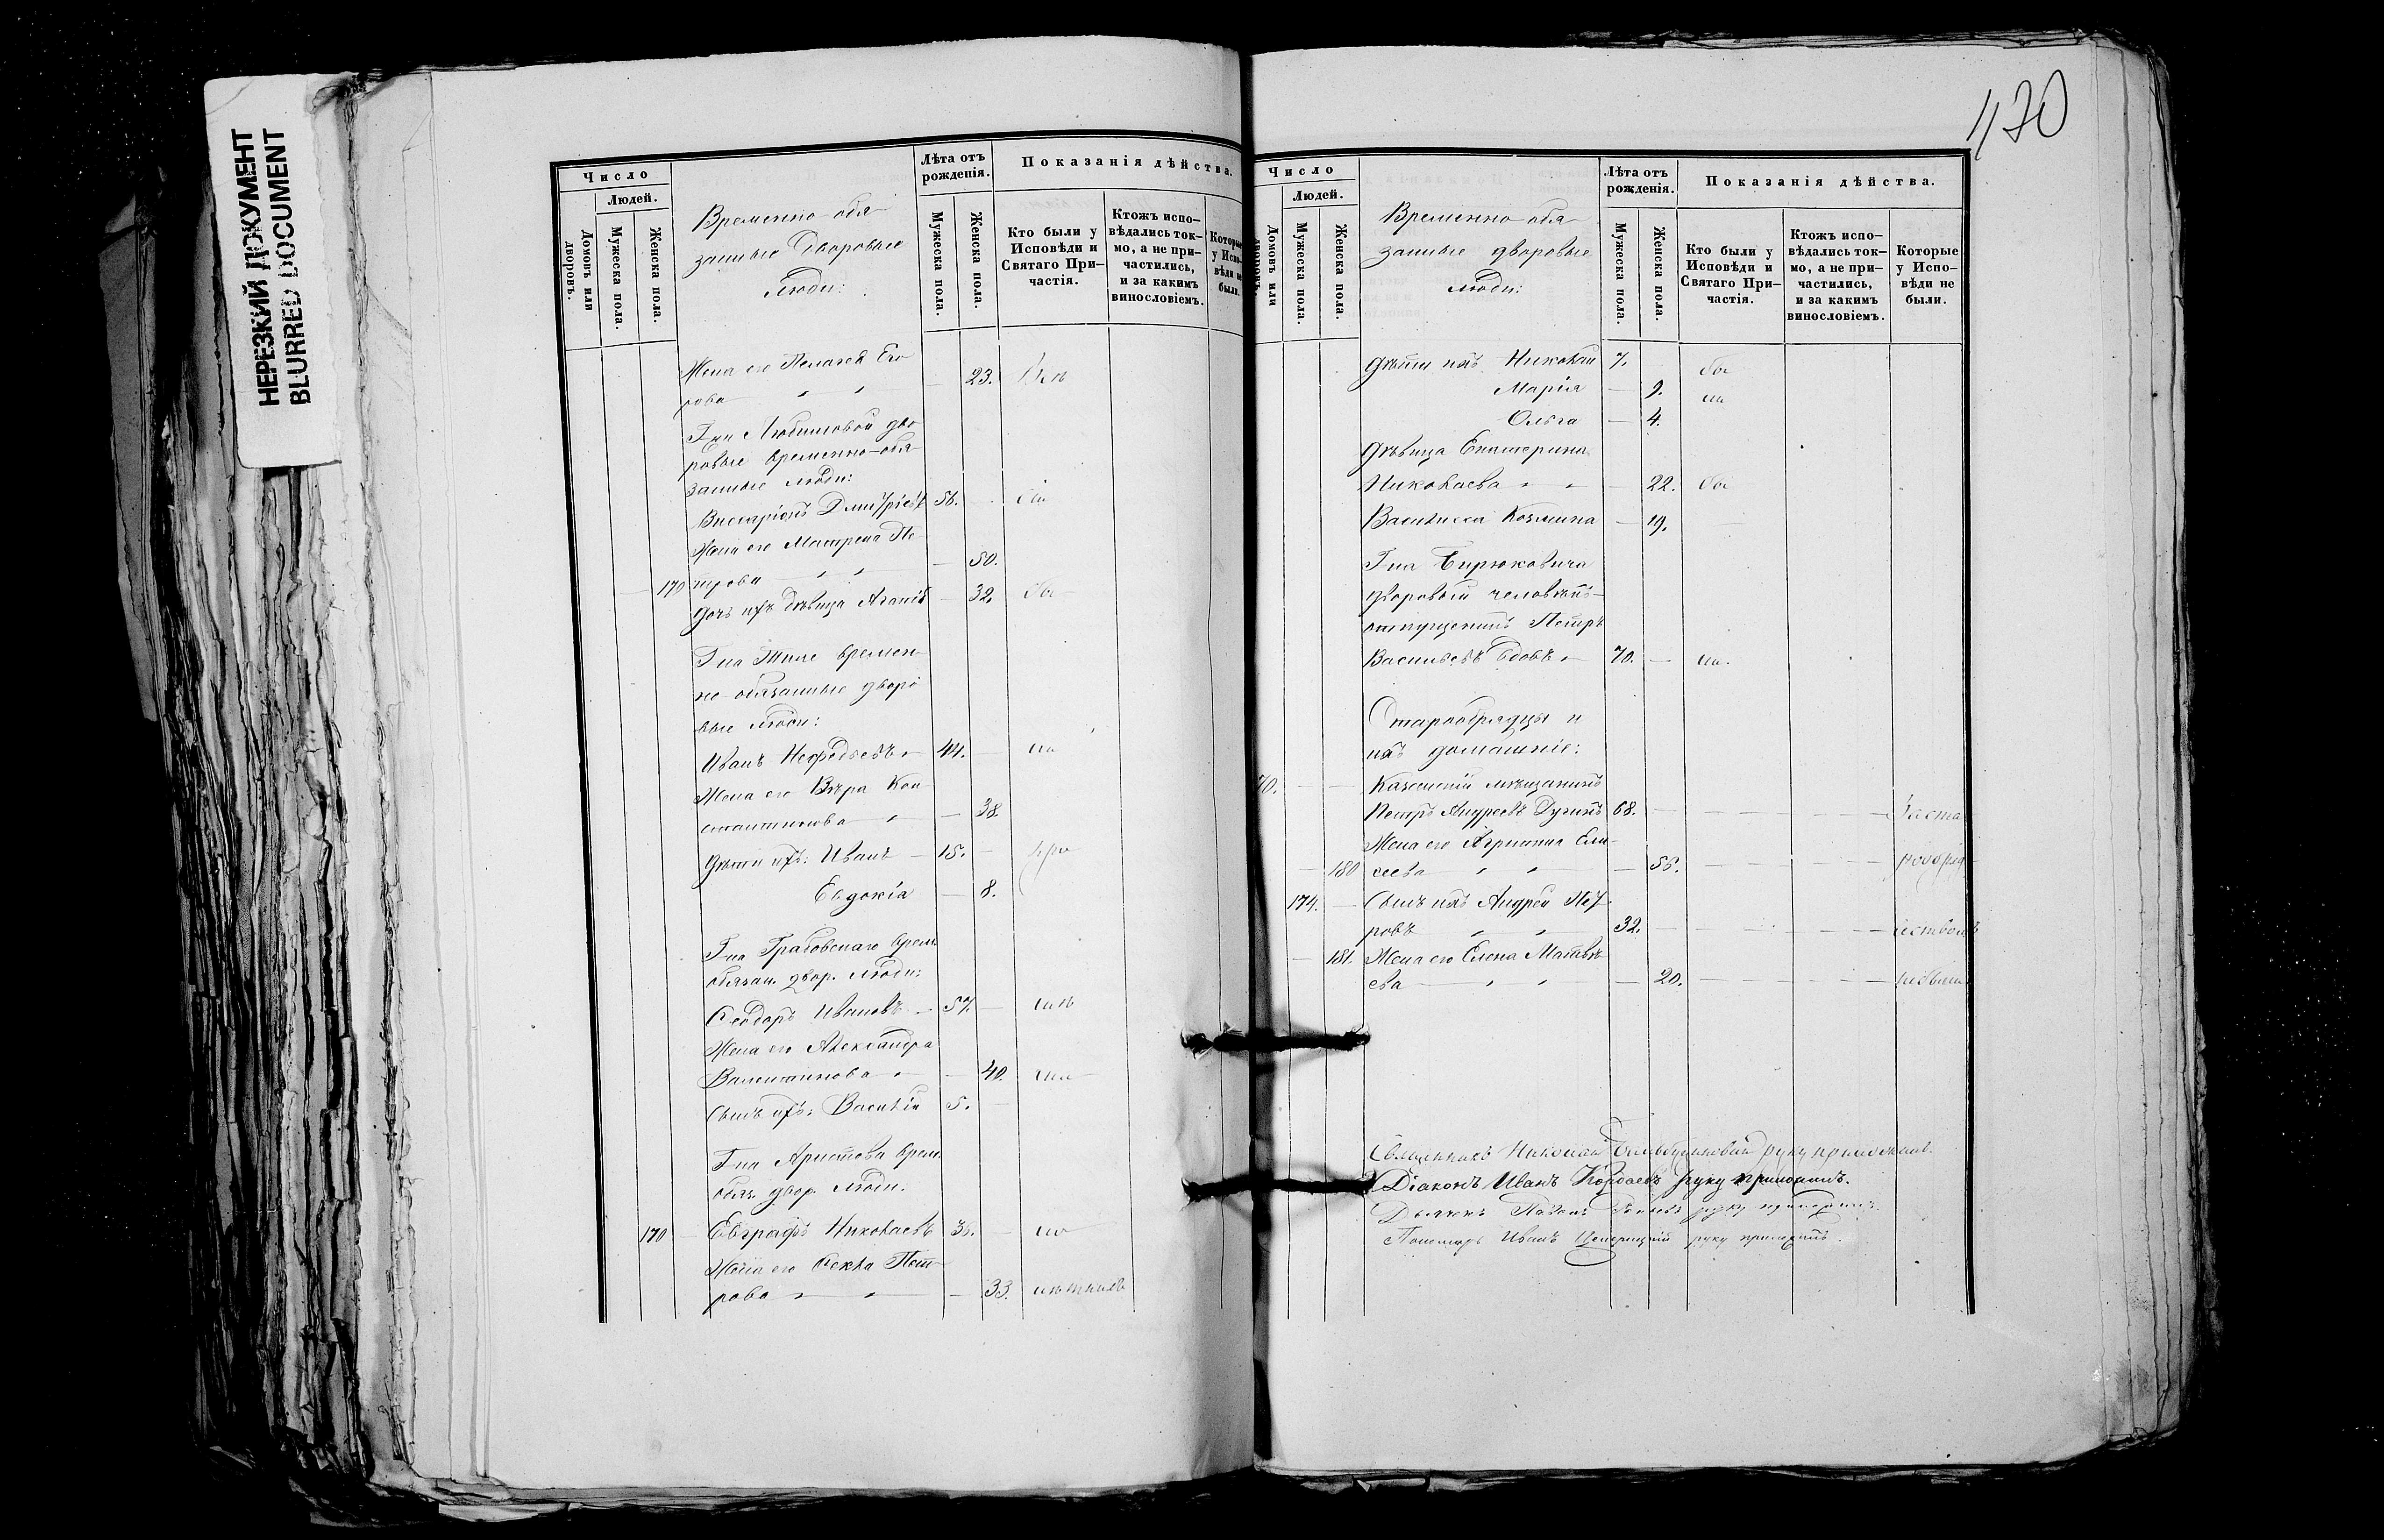 НЕРЕЗКИЙ ДОКУМЕНТ
BLURRED DOCUMENT
Число
Людей.
Домовъ или дворовъ.
Мужеска пола.
Женска пола.
Временно-обя-
занные дворовые
люди:
Лѣта отъ рожденія.
Мужеска пола.
Женска пола.
Показанія дѣйства.
Кто были у Исповѣди и Святаго При-частія.
Ктожъ испо-вѣдались ток-мо, а не при-частились, и за какимъ винословіемъ.
Которые у Испо-вѣди не были.
Жена его Пелагея Его-
рова 23. Всѣ
Г-жи Любимовой дво-
ровые временно-обя-
занные люди:
Виссаріонъ Дмитріевъ 56.
Жена его Матрена Пе-
трова 50.
179
Дочь ихъ дѣвица 32. бы
Г-на временн
но-обязанные дворо
вые люди:
Иванъ Нефедьевъ 44. на
Жена его Вѣра Кон-
стантинова 38.
Дѣти ихъ: Иванъ 15. при
Евдокія 8.
Г-на Грабовскаго врем.
обязан. двор. люди:
Ѳеодоръ Ивановъ 57.
Жена его Александра
40.
Сынъ ихъ: Василій 5.
Г-на Аристова врем.
обяз. двор. люди.
170 Евграфъ Николаевъ 35. но
Жена его Ѳекла Пет-
рова 33.
170
Число
Людей.
Домовъ или дворовъ.
Мужеска пола.
Женска пола.
Временно-обя-
занные дворовые
люди:
Лѣта отъ рожденія.
Мужеска пола.
Женска пола.
Показанія дѣйства.
Кто были у Исповѣди и Святаго При-частія.
Ктожъ испо-вѣдались ток-мо, а не при-частились, и за какимъ винословіемъ.
Которые у Испо-вѣди не были.
Дѣти ихъ Николай 7. бы
Марія 9. ли
Ольга 4.
Дѣвица Екатерина
Николаева 22. бы
Василиса Козмина 19.
Г-на Бирюковича
дворовый человѣкъ-
отпущенный Петръ
Васильевъ вдовъ 70. ли.
Старообрядцы и
ихъ домашніе:
70. Казанскій мѣщанинъ
Петръ Андреевъ 68.
Жена его Агриппина Ели-
180 сеева 55.
174. Сынъ ихъ Андрей Пет-
ровъ 32.
181. Жена его Елена Матвѣ-
ева 20.
Священникъ Николай руку приложилъ.
Діаконъ Иванъ руку приложилъ.
Дьячекъ Павелъ руку приложилъ.
Пономарь Иванъ руку приложилъ.